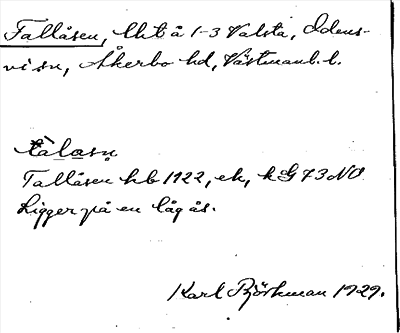 Tallåsen, lht å 1-3 Valsta, Odens-
visn, Åkerbo hd, Västmanl. l.
tàlåsn̥
Tallåsen hb 1922, ek, kG 73 NO
Ligger på en låg ås.
Karl Björkman 1929.